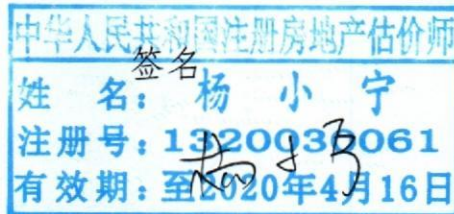 中华人民共和国注册房地产估价师
签名
姓 名：杨 小 宁
注册号：1320030061
有效期：至2020年4月16日
杨小宁